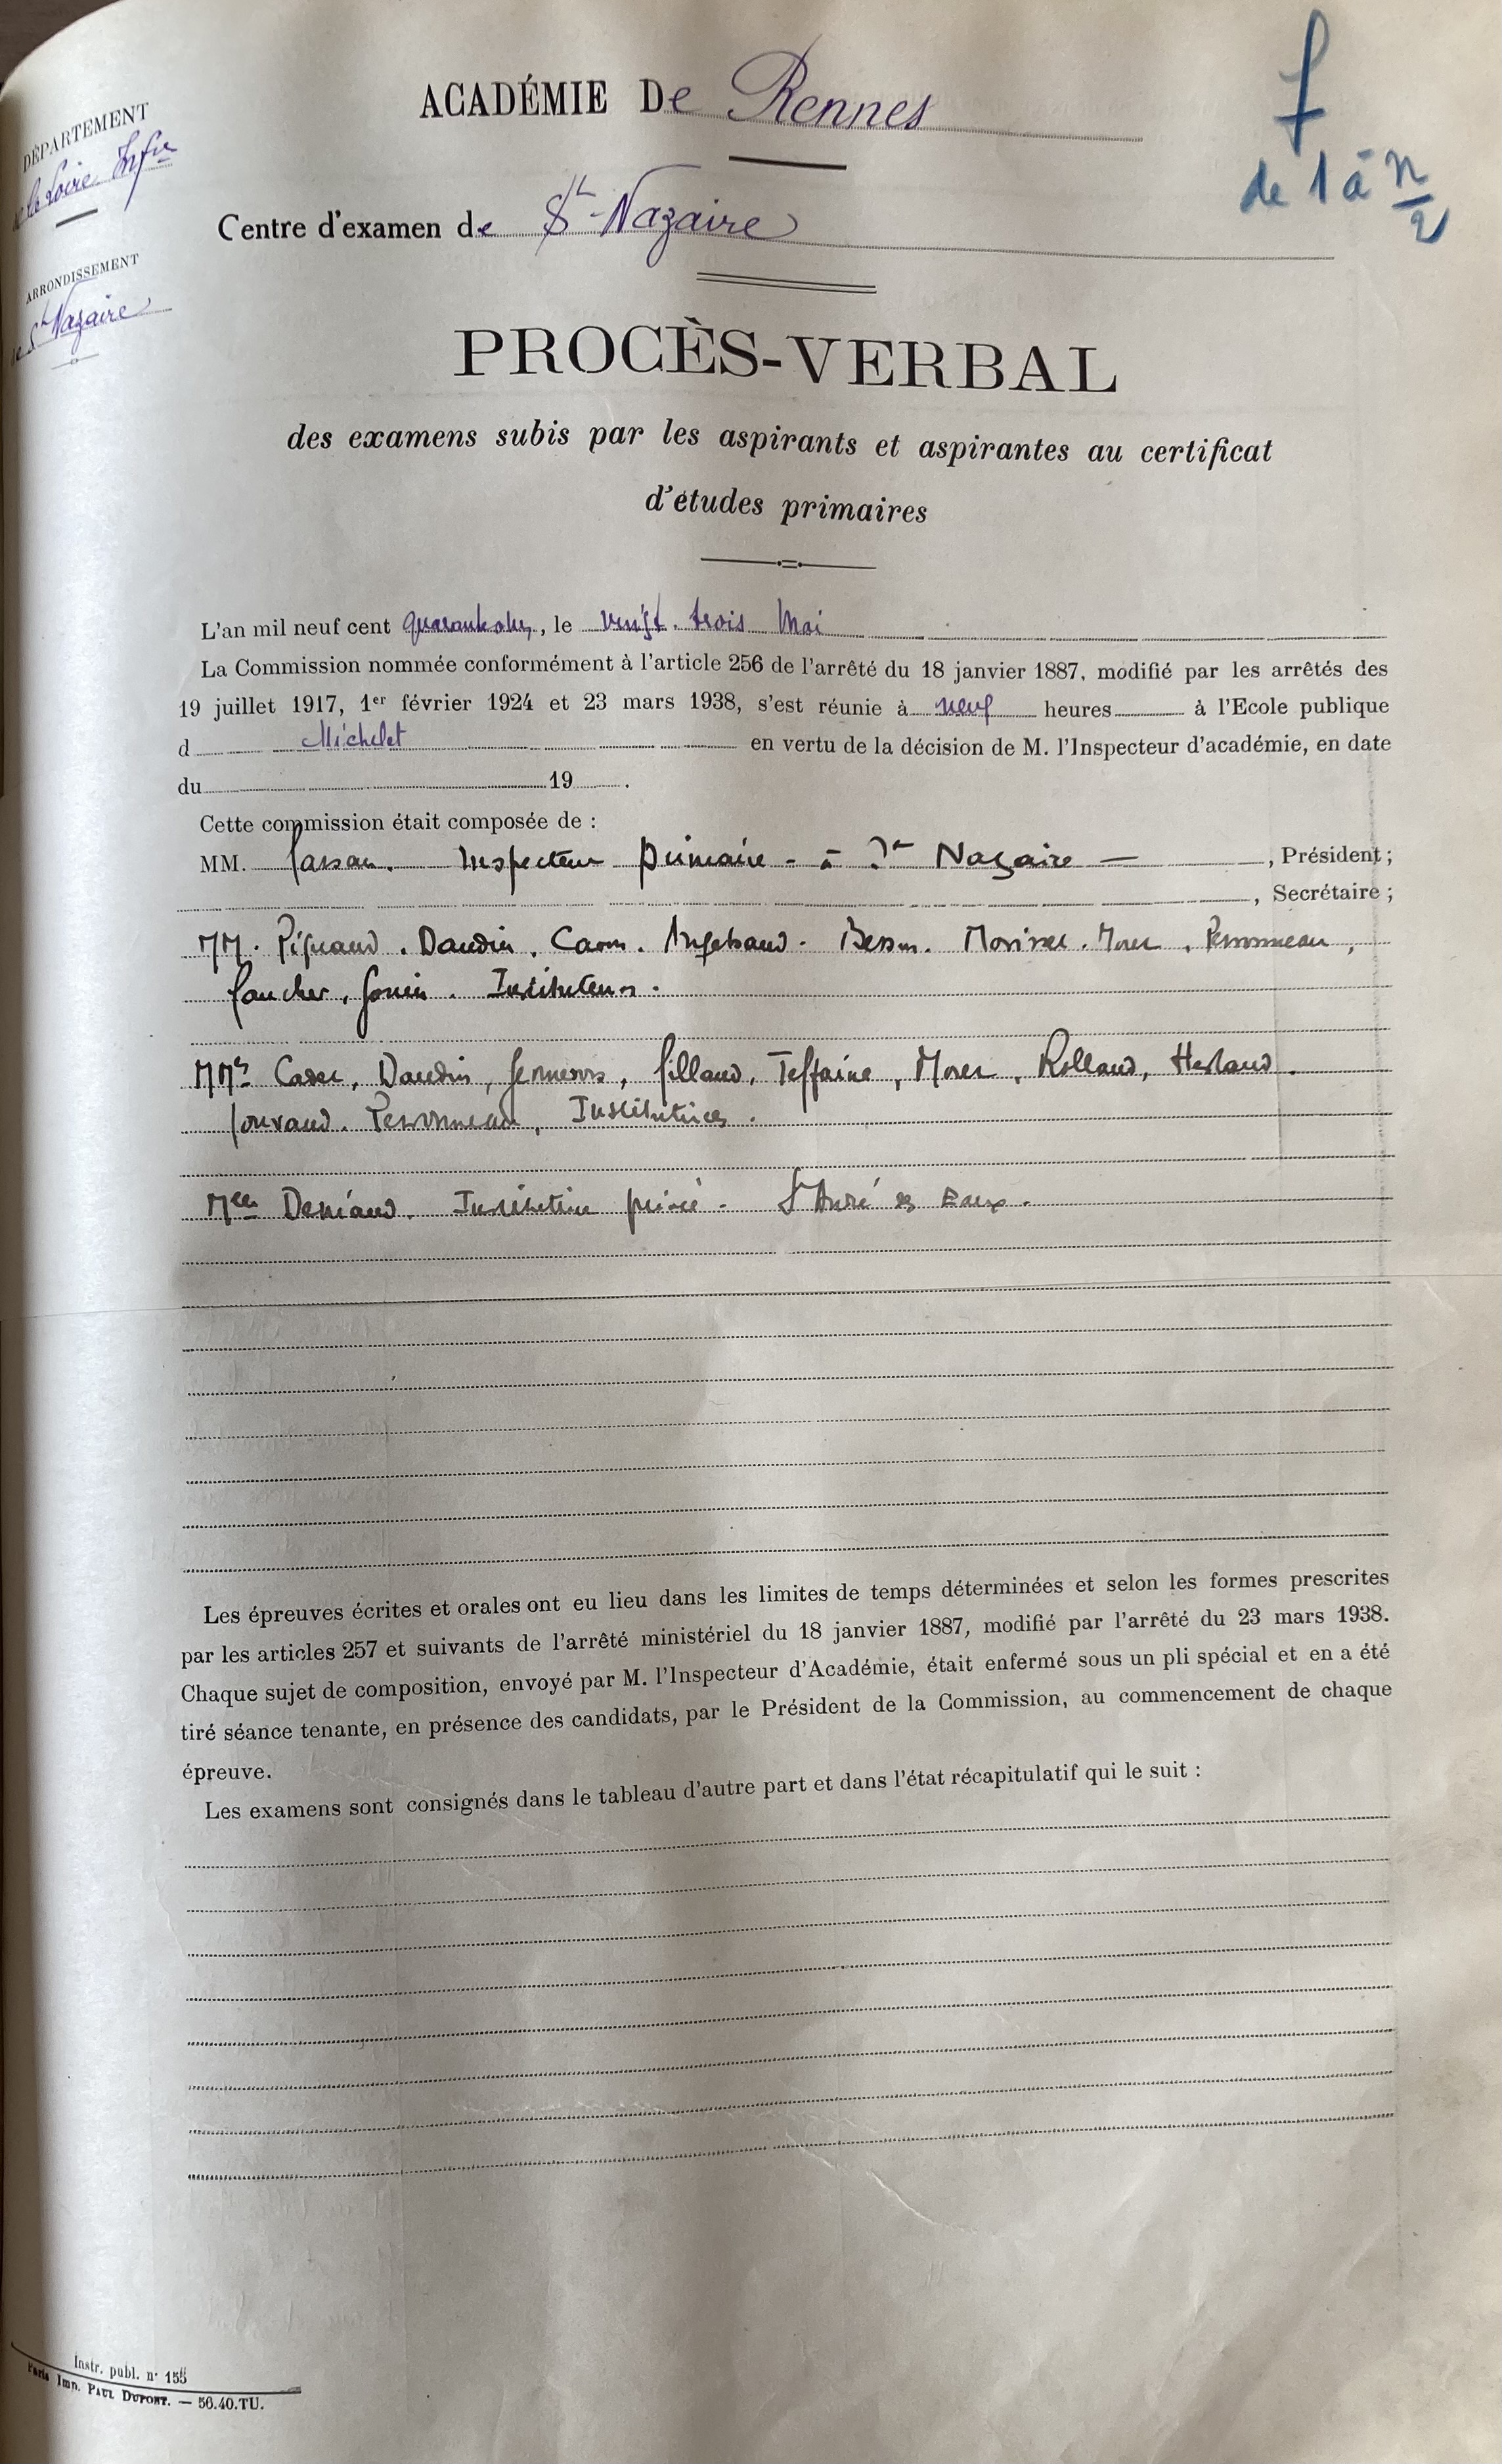 DÉPARTEMENT
de la Loire Infre
ARRONDISSEMENT
de St Nazaire
ACADÉMIE De Rennes
f
de 1 à n/2
Centre d'examen de St-Nazaire
PROCÈS-VERBAL
des examens subis par les aspirants et aspirantes au certificat
d'études primaires
L'an mil neuf cent, le vingt-trois Mai
La Commission nommée conformément à l'article 256 de l'arrêté du 18 janvier 1887, modifié par les arrêtés des
19 juillet 1917, 1er février 1924 et 23 mars 1938, s'est réunie à neuf heures à l'Ecole publique
d Michelet en vertu de la décision de M. l'Inspecteur d'académie, en date
du 19 .
Cette commission était composée de :
MM. Inspecteur Primaire - à St Nazaire —, Président ;
, Secrétaire ;
MM. Daudin. Besson. Morer. Personneau,
Faucher, Gouin. Instituteurs.
Mmes Daudin, Gillaud, Teffaine, Morer, Rolland, Herlaud.
Personneau, Institutrices.
Melle Deniaud. Institutrice privée - St André des Eaux.
Les épreuves écrites et orales ont eu lieu dans les limites de temps déterminées et selon les formes prescrites
par les articles 257 et suivants de l'arrêté ministériel du 18 janvier 1887, modifié par l'arrêté du 23 mars 1938.
Chaque sujet de composition, envoyé par M. l'Inspecteur d'Académie, était enfermé sous un pli spécial et en a été
tiré séance tenante, en présence des candidats, par le Président de la Commission, au commencement de chaque
épreuve.
Les examens sont consignés dans le tableau d'autre part et dans l'état récapitulatif qui le suit :
Instr. publ. n° 155
Paris Imp. PAUL DUPONT. — 56.40.TU.